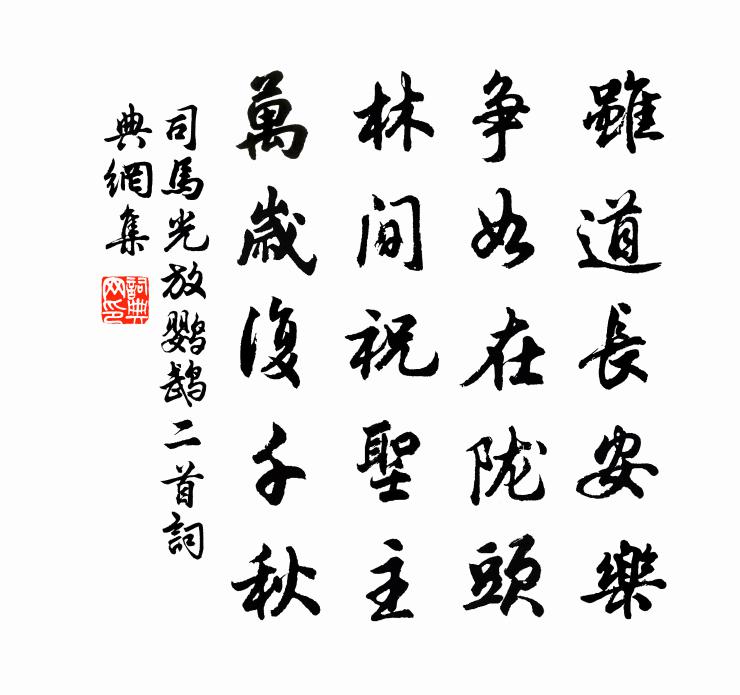 雖道長安樂
争如在陇頭
林间祝聖主
萬歲復千秋
司馬光放鹦鹉二首詞
典網集
詞典网印